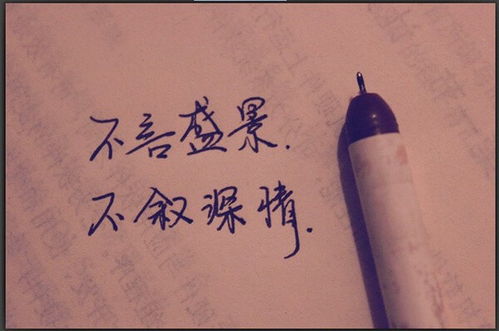 不言盛景.
不叙深情.